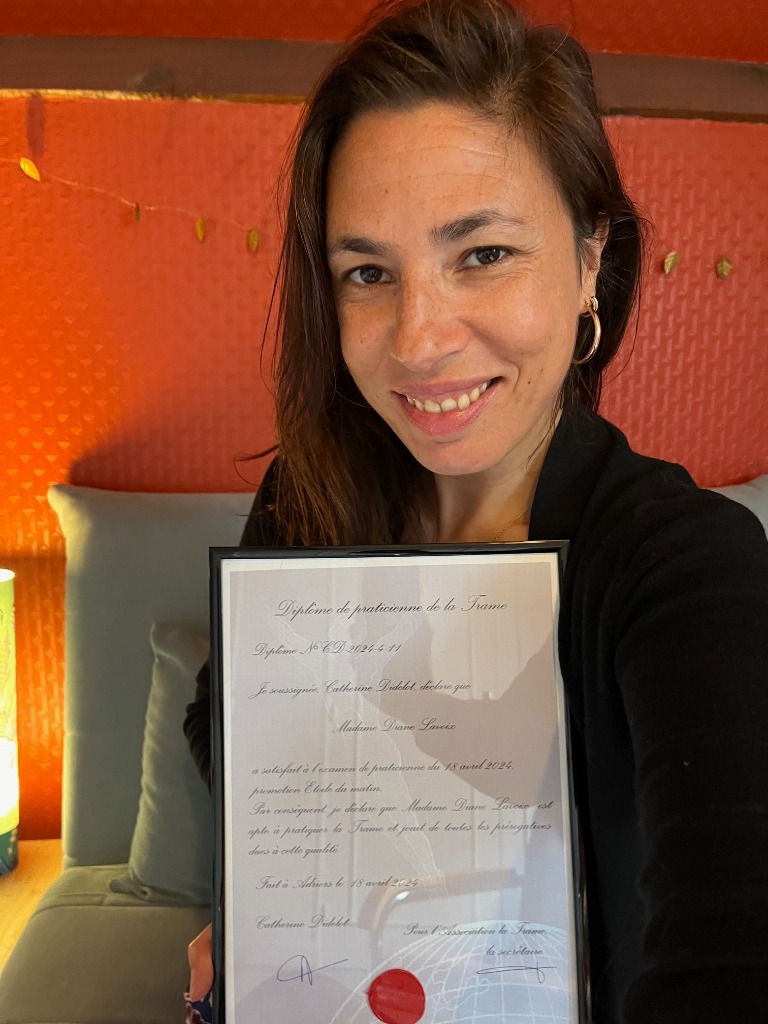 Diplôme de praticienne de la Trame
Diplôme N° CD 2024-4-11
Je soussignée, Catherine Didelot, déclare que
Madame Diane Lavoix
a satisfait à l'examen de praticienne du 18 avril 2024,
promotion Etoile du matin.
Par conséquent, je déclare que Madame Diane Lavoix est
apte à pratiquer la Trame et jouit de toutes les prérogatives
dues à cette qualité.
Fait à Adriers le 18 avril 2024
Catherine Didelot
Pour l'Association la Trame,
la secrétaire